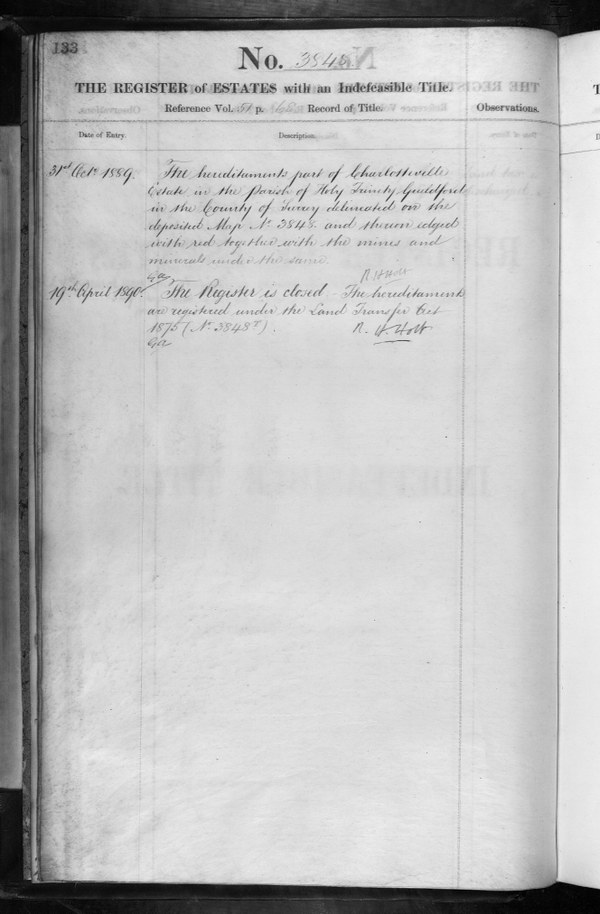 133
No. 3848.
THE REGISTER of ESTATES with an Indefeasible Title.
Reference Vol. p. Record of Title.
Observations.
Date of Entry.
Description.
31st Octr 1889.
The hereditaments part of Charlotteville
Estate in the parish of Holy Trinity Guildford
in the County of Surrey delineated on the
deposited Map No 3848 and thereon edged
with red together with the mines and
minerals under the same.
R H Holt
19th April 1890.
The Register is closed. The hereditaments
are registered under the Land Transfer Act
1875 (No 3848).
R. H. Holt